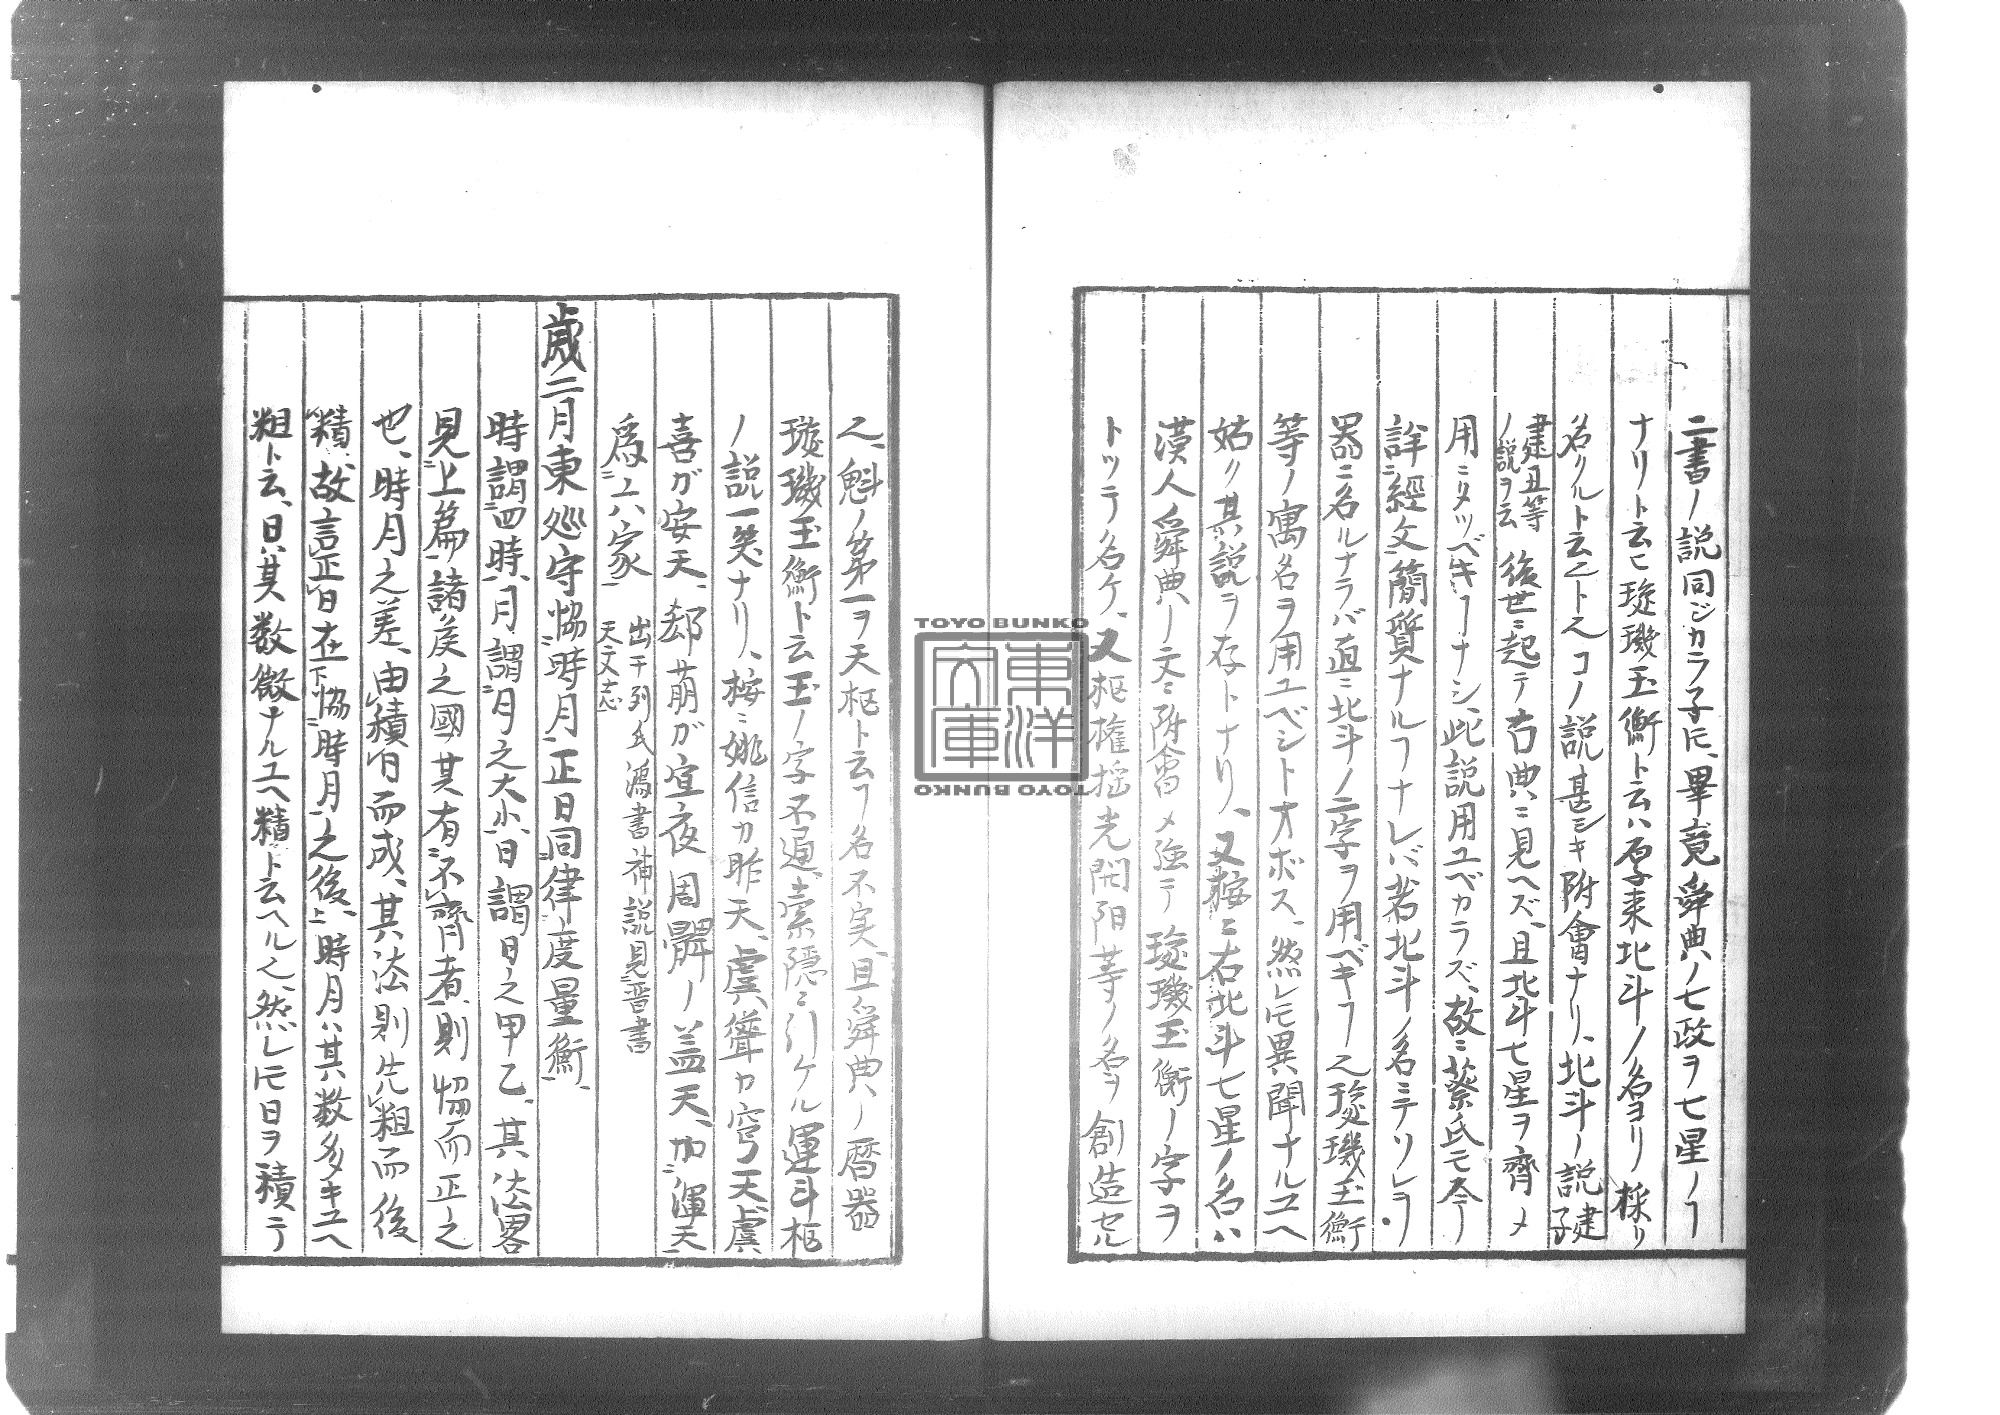 二書ノ説同ジカラ子𪜈、畢竟舜典ノ七政ヲ七星ノヿ
ナリト云ヒ璇璣玉衡ト云ハ原來北斗ノ名ヨリ採リ
名クルト云フ〆コノ説甚シキ附會ナリ、北斗ノ説建子
建丑等ノ説ヲ云
後世ニ起テ古典ニ見ヘズ、且北斗七星ヲ齊メ
用ニタツベキヿナシ、此説用ユベカラズ、故ニ蔡氏モ今
詳ニ經文簡質ナルヿナレバ若北斗ノ名ミテソレヲ
器ニ名ルナラバ直ニ北斗ノ二字ヲ用ベキヿ也璇璣玉衡
等ノ寓名ヲ用ユベシトオボス、然レ𪜈異聞ナルユヘ
姑ク其説ヲ存トナリ、又按ニ右北斗七星ノ名ハ
漢人舜典ノ文ニ附會メ強テ璇璣玉衡ノ字ヲ
トツテ名ケ、又枢権揺光開陽等ノ名ヲ創造セル
也、魁ノ第一ヲ天枢ト云フ名不実、且舜典ノ暦器
璇璣玉衡ト云玉ノ字不通、索隠ニ引ケル運斗枢
ノ説一笑ナリ、按ニ姚信カ昕天、虞聳カ穹天、虞
喜ガ安天、郄萠ガ宣夜周髀ノ蓋天、加渾天
為六家
出于列氏鴻書補説見晋書
天文志
歳二月東巡守協時月正日同律度量衡、
時謂四時、月謂月之大小、日謂日之甲乙、其法畧
見上篇、諸侯之國其有不齊者、則協而正之
也、時月之差、由積日而成、其法則先粗而後
精、故言正日在協時月之後、時月ハ其数多キユヘ
粗ト云、日ハ其数微ナルユヘ精ト云ヘル也、然レ𪜈日ヲ積テ
TOYO BUNKO
東洋文庫
TOYO BUNKO